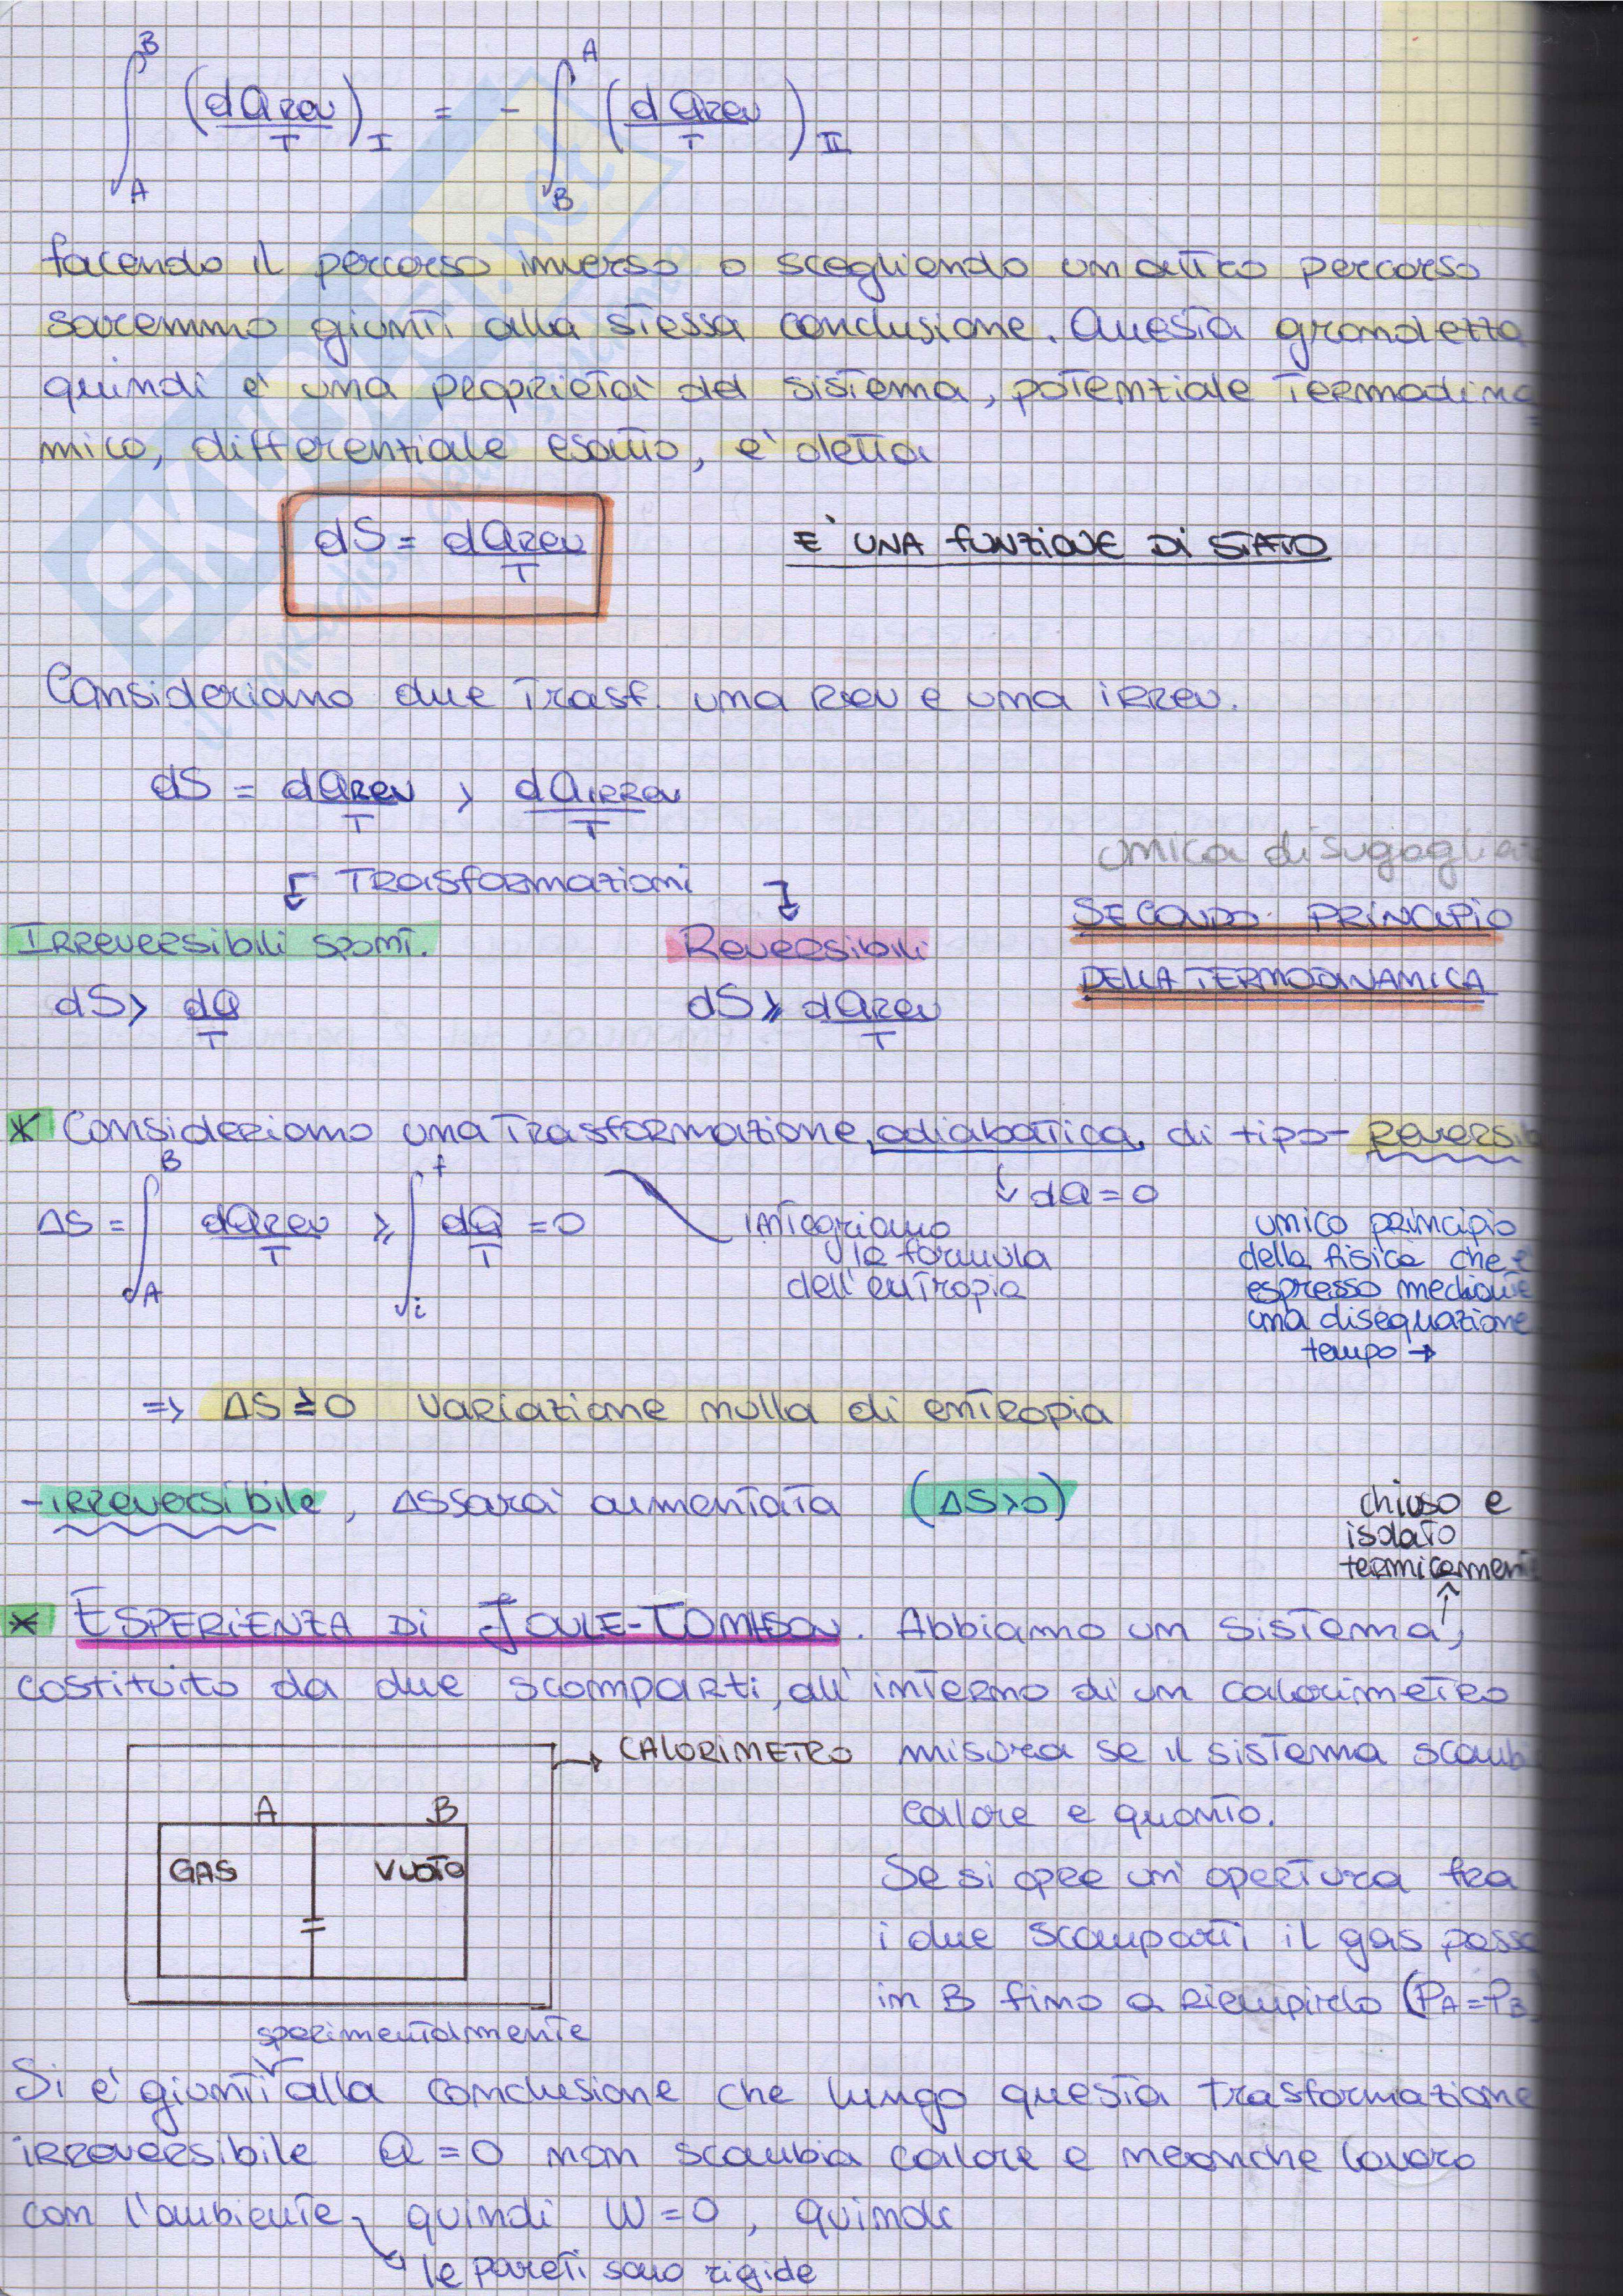 ∫_A^B (dQrev/T)_I = - ∫_B^A (dQrev/T)_II
facendo il percorso inverso o scegliendo un altro percorso
saremmo giunti alla stessa conclusione. Questa grandezza
quindi e' una proprietà del sistema, potenziale termodina
mico, differenziale esatto, e' detta
dS = dQrev/T E' UNA FUNZIONE DI STATO
Consideriamo due trasf. una rev e una irrev.
dS = dQrev/T > dQirrev/T
unica disuguaglia
↓ Trasformazioni ↓
Irreversibili spont. Reversibili SECONDO PRINCIPIO
DELLA TERMODINAMICA
dS > dQ/T dS ≥ dQrev/T
* Consideriamo una trasformazione adiabatica di tipo - reversib
↓ dQ = 0
ΔS = ∫_A^B dQrev/T ≥ ∫_i^f dQ/T = 0
integriamo
la formula
dell'entropia
unico principio
della fisica che è
espresso mediante
una disequazione
tempo →
=> ΔS ≥ 0 variazione nulla di entropia
- irreversibile, ΔS sarà aumentata (ΔS>0)
chiuso e
isolato
termicament
↑
* ESPERIENZA DI JOULE-TOMHSON. Abbiamo un sistema,
costituito da due scomparti, all'interno di un calorimetro
→ CALORIMETRO misura se il sistema scamb
calore e quanto.
A B
GAS VUOTO
Se si apre un'apertura fra
i due scomparti il gas passa
in B fino a riempirlo (PA=PB)
sperimentalmente
Si e' giunti alla conclusione che lungo questa trasformazione
irreversibile Q = 0 non scambia calore e neanche lavoro
con l'ambiente, quindi W = 0, quindi
le pareti sono rigide
SKUOLA.net